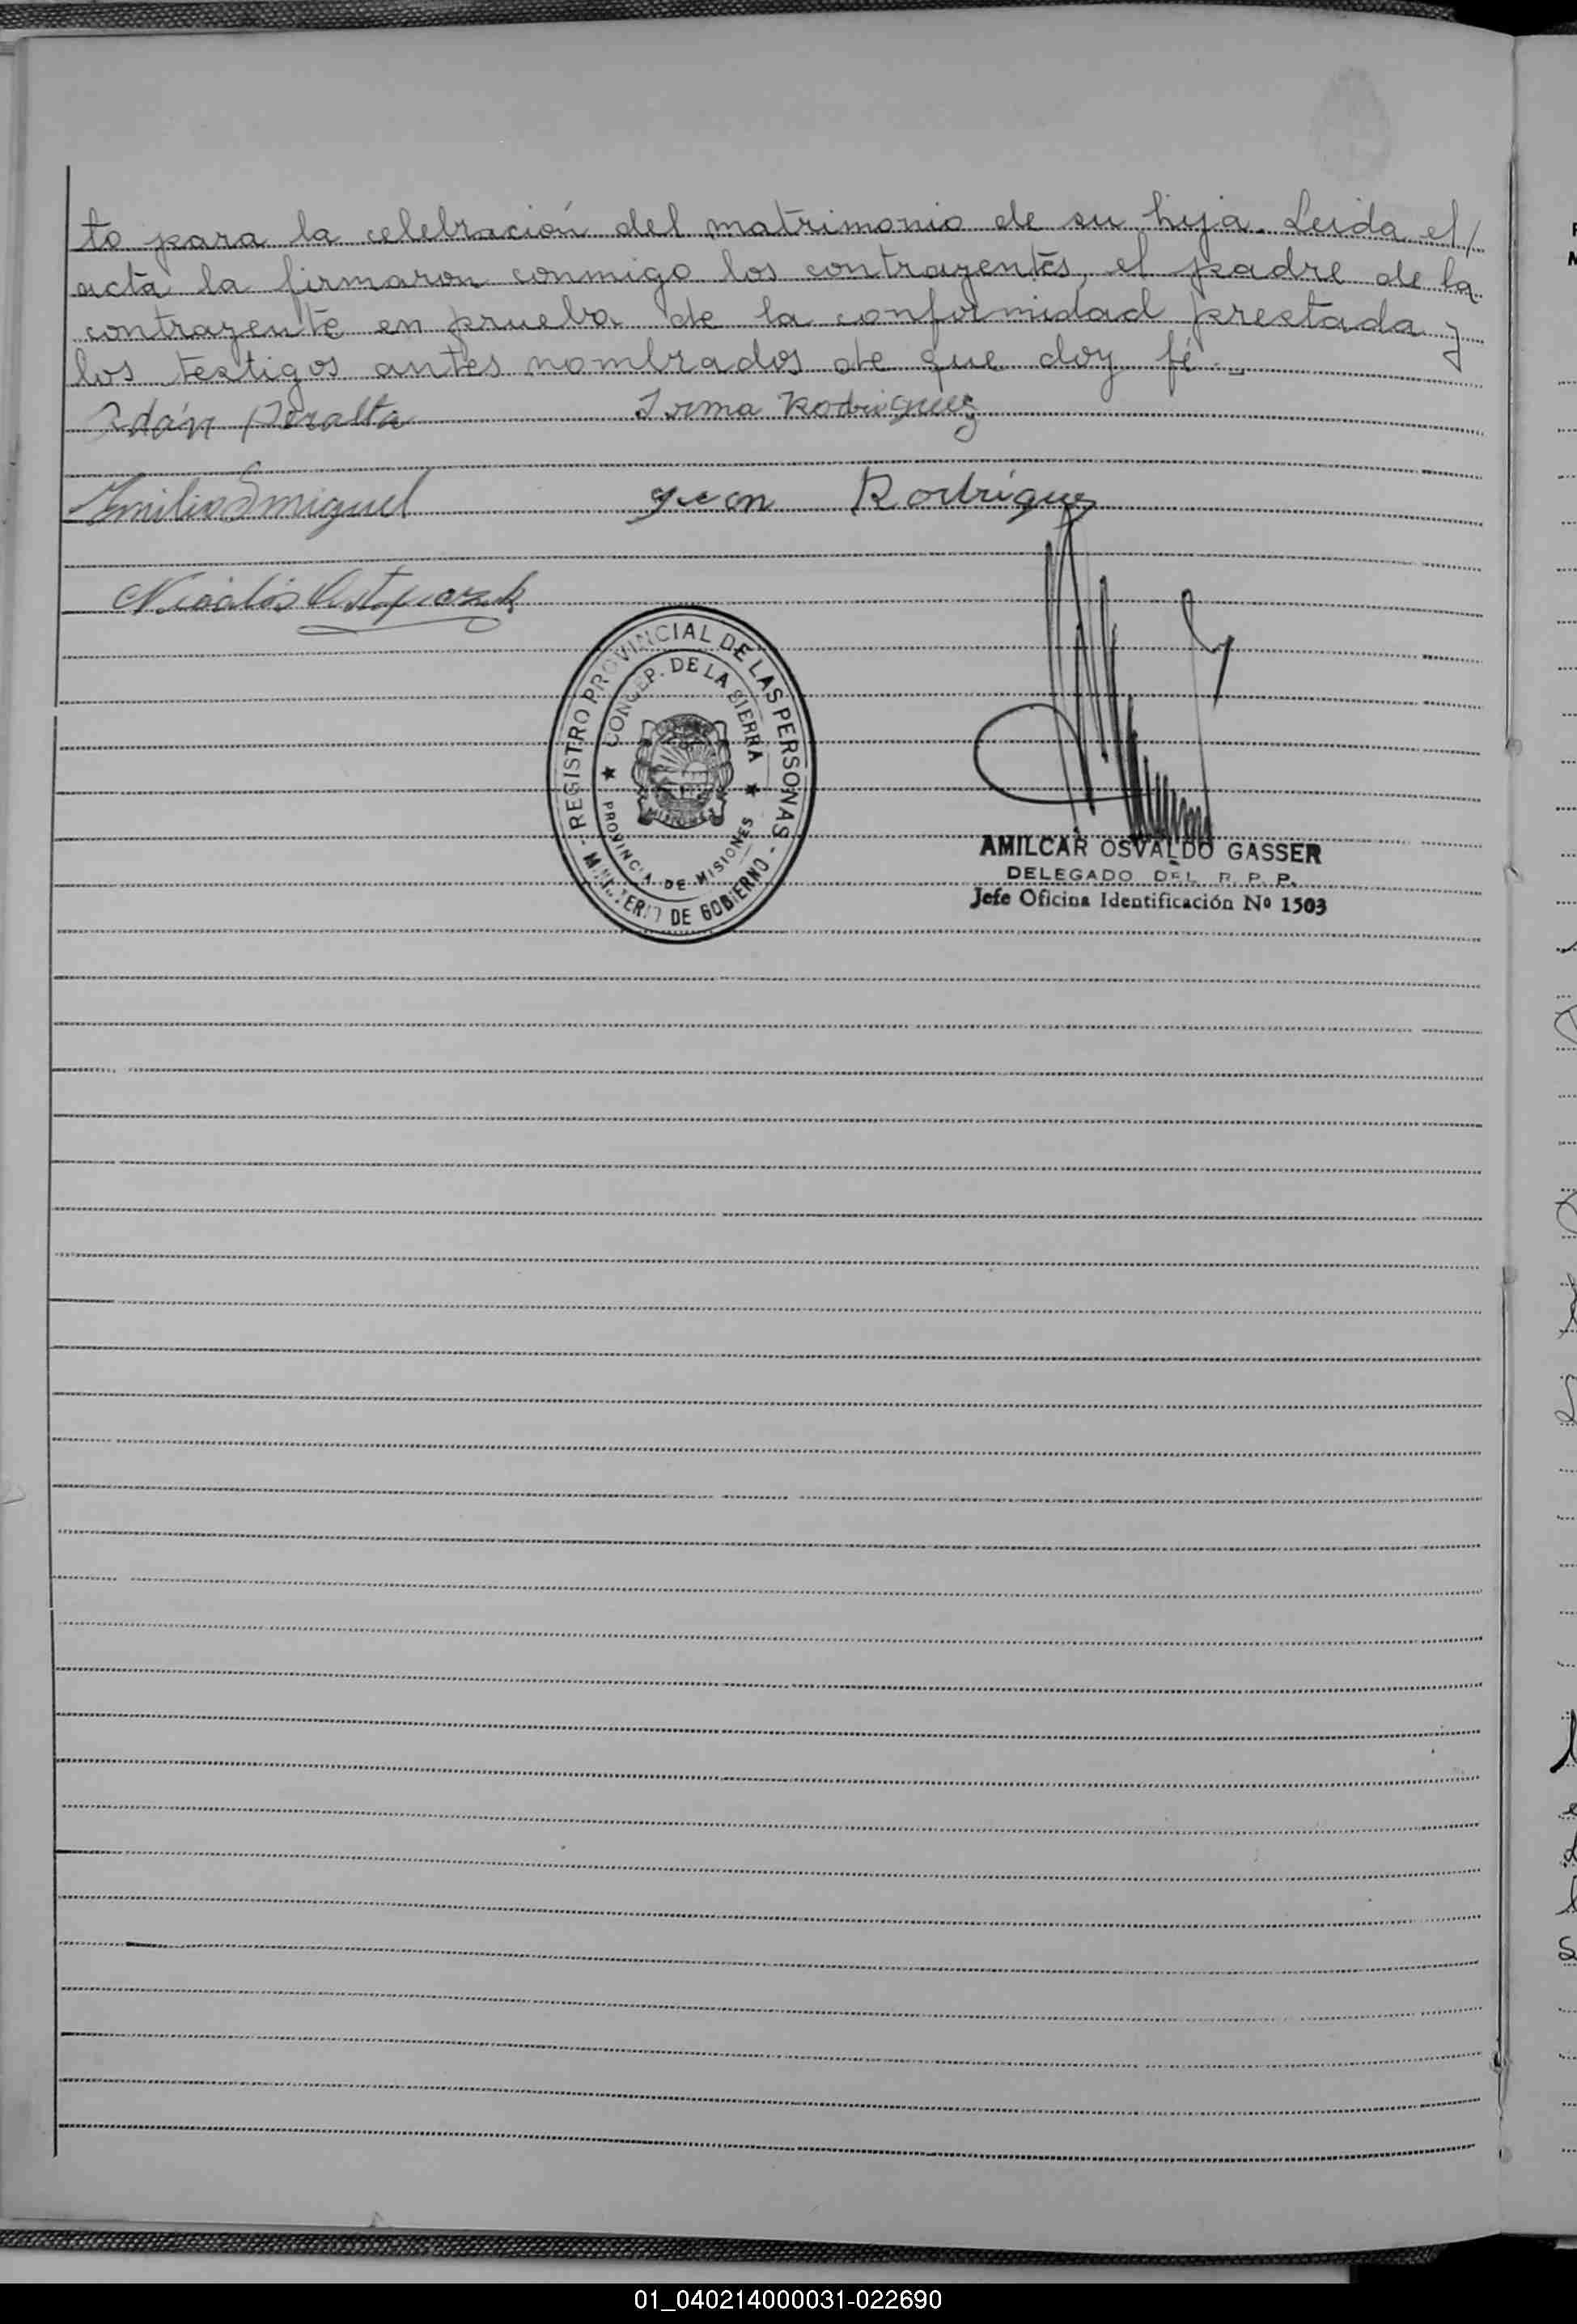 to para la celebración del matrimonio de su hija. Leida el/
acta la firmaron conmigo los contrayentes, el padre de la
contrayente en prueba de la conformidad prestada y
los testigos antes nombrados de que doy fé.-
Adán Peralta Irma Rodriguez
Emilio Smiguel Juan Rodriguez
Nicolás
REGISTRO PROVINCIAL DE LAS PERSONAS
CONCEP. DE LA SIERRA
MISIONES
PROVINCIA DE MISIONES
- MINISTERIO DE GOBIERNO -
AMILCAR OSVALDO GASSER
DELEGADO DEL R. P. P.
Jefe Oficina Identificación Nº 1503
01_040214000031-022690